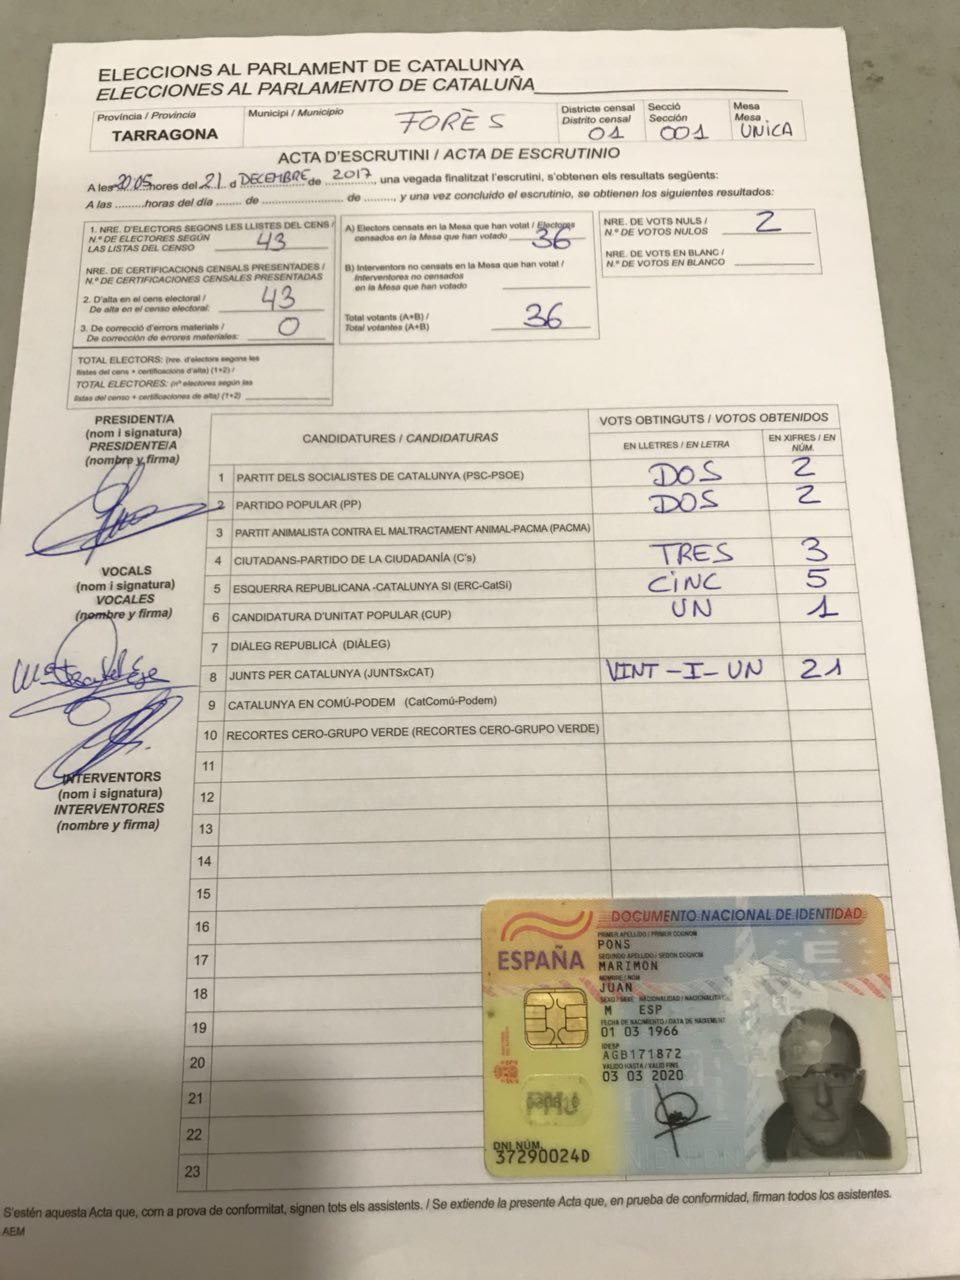 ELECCIONS AL PARLAMENT DE CATALUNYA
ELECCIONES AL PARLAMENTO DE CATALUÑA
Província / Provincia
TARRAGONA
Municipi / Municipio
FORÈS
Districte censal
Distrito censal
01
Secció
Sección
001
Mesa
Mesa
UNICA
ACTA D'ESCRUTINI / ACTA DE ESCRUTINIO
A les 20:05 hores del 21 d DECEMBRE de 2017, una vegada finalitzat l'escrutini, s'obtenen els resultats següents:
A las .........horas del día ........ de ........................ de ........., y una vez concluido el escrutinio, se obtienen los siguientes resultados:
1. NRE. D'ELECTORS SEGONS LES LLISTES DEL CENS /
N.º DE ELECTORES SEGÚN
LAS LISTAS DEL CENSO 43
NRE. DE CERTIFICACIONS CENSALS PRESENTADES /
N.º DE CERTIFICACIONES CENSALES PRESENTADAS
2. D'alta en el cens electoral /
De alta en el censo electoral: 43
3. De correcció d'errors materials /
De corrección de errores materiales: 0
TOTAL ELECTORS: (nre. d'electors segons les
llistes del cens + certificacions d'alta) (1+2) /
TOTAL ELECTORES: (nº electores según las
listas del censo + certificaciones de alta) (1+2)
A) Electors censats en la Mesa que han votat / Electores
censados en la Mesa que han votado 36
B) Interventors no censats en la Mesa que han votat /
Interventores no censados
en la Mesa que han votado
Total votants (A+B) /
Total votantes (A+B) 36
NRE. DE VOTS NULS /
N.º DE VOTOS NULOS 2
NRE. DE VOTS EN BLANC /
N.º DE VOTOS EN BLANCO
PRESIDENT/A
(nom i signatura)
PRESIDENTE/A
(nombre y firma)
VOCALS
(nom i signatura)
VOCALES
(nombre y firma)
INTERVENTORS
(nom i signatura)
INTERVENTORES
(nombre y firma)
CANDIDATURES / CANDIDATURAS
VOTS OBTINGUTS / VOTOS OBTENIDOS
EN LLETRES / EN LETRA
EN XIFRES / EN NÚM.
1 PARTIT DELS SOCIALISTES DE CATALUNYA (PSC-PSOE) DOS 2
2 PARTIDO POPULAR (PP) DOS 2
3 PARTIT ANIMALISTA CONTRA EL MALTRACTAMENT ANIMAL-PACMA (PACMA)
4 CIUTADANS-PARTIDO DE LA CIUDADANÍA (C's) TRES 3
5 ESQUERRA REPUBLICANA -CATALUNYA SI (ERC-CatSi) CINC 5
6 CANDIDATURA D'UNITAT POPULAR (CUP) UN 1
7 DIÀLEG REPUBLICÀ (DIÀLEG)
8 JUNTS PER CATALUNYA (JUNTSxCAT) VINT-I-UN 21
9 CATALUNYA EN COMÚ-PODEM (CatComú-Podem)
10 RECORTES CERO-GRUPO VERDE (RECORTES CERO-GRUPO VERDE)
11
12
13
14
15
16
17
18
19
20
21
22
23
DOCUMENTO NACIONAL DE IDENTIDAD
ESPAÑA
PRIMER APELLIDO / PRIMER COGNOM
PONS
SEGUNDO APELLIDO / SEGON COGNOM
MARIMON
NOMBRE / NOM
JUAN
SEXO / SEXE NACIONALIDAD / NACIONALITAT
M ESP
FECHA DE NACIMIENTO / DATA DE NAIXEMENT
01 03 1966
IDESP
AGB171872
VALIDO HASTA / VALID FINS
03 03 2020
DNI NÚM.
37290024D
S'estén aquesta Acta que, com a prova de conformitat, signen tots els assistents. / Se extiende la presente Acta que, en prueba de conformidad, firman todos los asistentes.
AEM